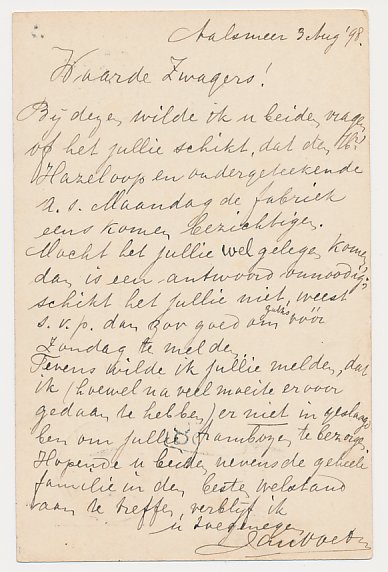 Aalsmeer 3 Aug '98.
Waarde Zwagers!
Bij dezen wilde ik u beiden vragen
of het jullie schikt, dat de
Hazeloop en ondergeteekende
a. s. Maandag de fabriek
eens komen bezichtigen.
Mocht het jullie wel gelegen komen
dan is een antwoord onnoodig;
schikt het jullie niet, weest
s. v. p. dan zoo goed om vóór
Zondag te melden.
Tevens wilde ik jullie melden, dat
ik (hoewel na veel moeite er voor
gedaan te hebben) er niet in geslaagd
ben om jullie frambozen te bezorgen.
Hopende u beiden nevens de geheele
familie in den besten welstand
aan te treffen, verblijf ik
u toegenegen